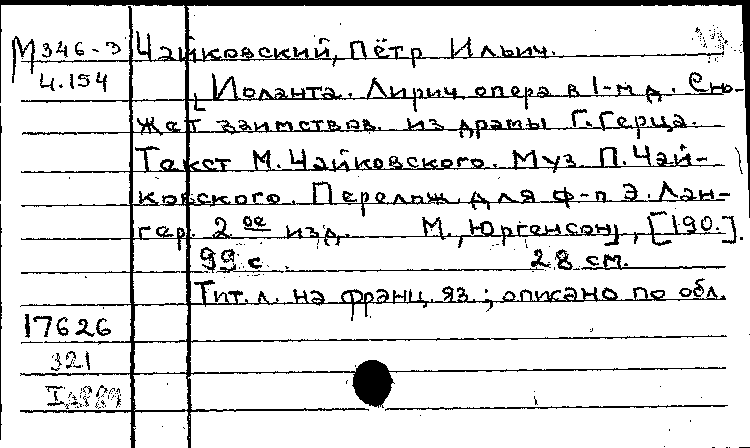 М346-Э
4.154
Чайковский, Пётр Ильич.
Иоланта. Лирич. опера в 1-м д. Сю-
жет заимствов. из драмы Г. Герца.
Текст М. Чайковского. Муз. П. Чай-
ковского. Перелож. для ф-п Э. Лан-
гер. 2ое изд. М., Юргенсон, [190.].
99 с. 28 см.
Тит. л. на франц. яз.; описано по обл.
17626
321